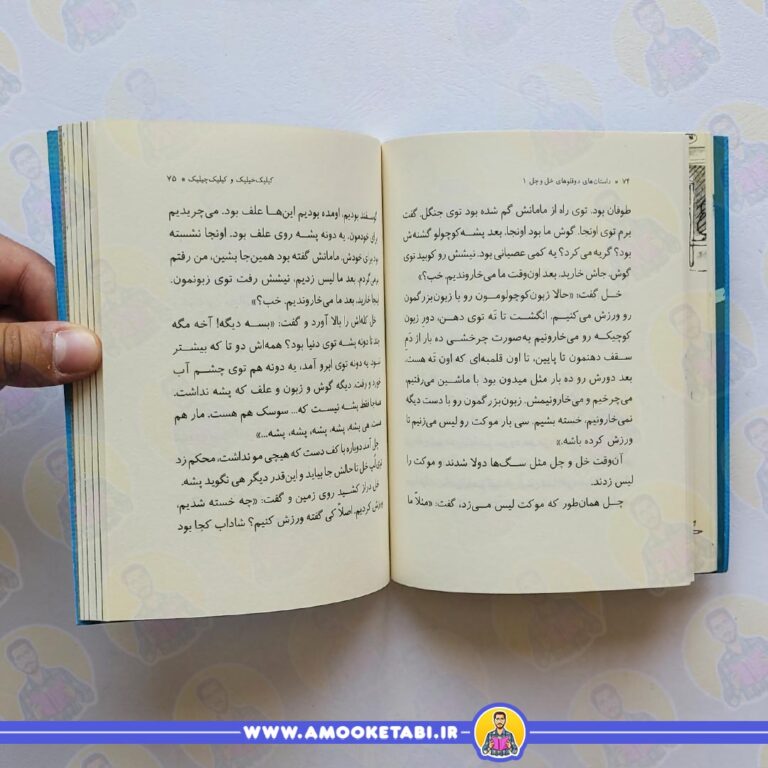 ۷۴ * داستان‌های دوقلوهای خل و چل ۱
طوفان بود. توی راه از مامانش گم شده بود توی جنگل. گفت
برم توی اونجا. گوش ما بود اونجا. بعد پشه‌کوچولو گشنه‌ش
بود؟ گریه می‌کرد؟ یه کمی عصبانی بود. نیشش رو کوبید توی
گوش. جاش خارید. بعد اون‌وقت ما می‌خاروندیم. خب؟»
خل گفت: «حالا زبون‌کوچولومون رو با زبون‌بزرگمون
رو ورزش می‌کنیم. انگشت تا تَه توی دهن، دور زبون
کوچیکه رو می‌خارونیم به‌صورت چرخشی ده بار از دَم
سقف دهنمون تا پایین، تا اون قلمبه‌ای که اون تَه هست.
بعد دورش رو ده بار مثل میدون بود با ماشین می‌رفتیم
می‌چرخیم و می‌خارونیمش. زبون‌بزرگمون رو با دست دیگه
نمی‌خارونیم. خسته بشیم. سی بار موکت رو لیس می‌زنیم تا
ورزش کرده باشه.»
آن‌وقت خل و چل مثل سگ‌ها دولا شدند و موکت را
لیس زدند.
چل همان‌طور که موکت لیس می‌زد، گفت: «مثلاً ما
کیلیک‌حیلیک و کیلیک‌جیلیک * ۷۵
گوسفند بودیم، اومده بودیم این‌ها علف بود. می‌چریدیم
برای خودمون. یه دونه پشه روی علف بود. اونجا نشسته
بود برای خودش. مامانش گفته بود همین‌جا بشین، من رفتم
برمی‌گردم. بعد ما لیس زدیم، نیشش رفت توی زبونمون.
اینجا خارید. بعد ما می‌خاروندیم. خب؟»
خل کله‌اش را بالا آورد و گفت: «بسه دیگه! آخه مگه
چند تا دونه پشه توی دنیا بود؟ همه‌اش دو تا که بیشتر
نبود. یه دونه توی ابرو آمد، یه دونه هم توی چشم آب
خورد و رفت. دیگه گوش و زبون و علف که پشه نداشت.
همه‌جا فقط پشه نیست که... سوسک هم هست. مار هم
هست. هی پشه، پشه، پشه، پشه، پشه...»
چل آمد دوباره با کف دست که هیچی مو نداشت، محکم زد
خل تا حالش جا بیاید و این‌قدر دیگر هی نگوید پشه.
خل دراز کشید روی زمین و گفت: «چه خسته شدیم،
ورزش کردیم. اصلاً کی گفته ورزش کنیم؟ شاداب کجا بود
WWW.AMOOKETABI.IR